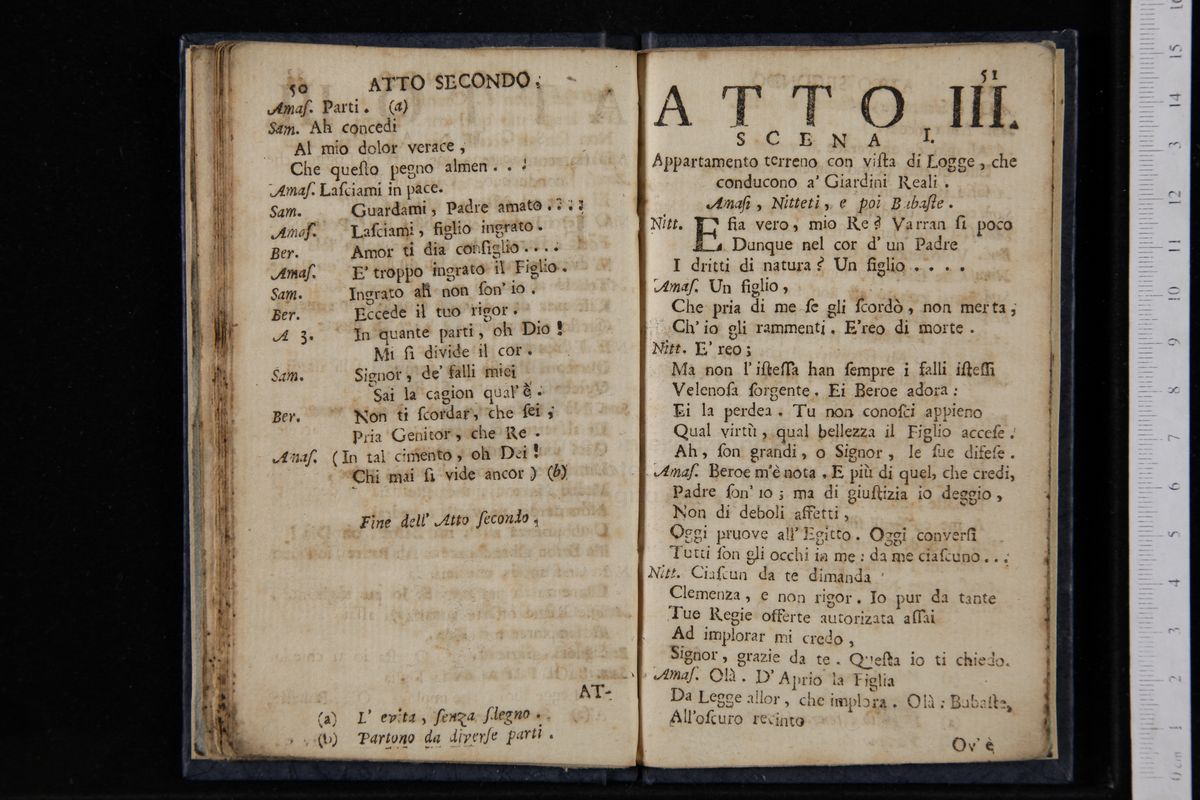 50 ATTO SECONDO.
Amaſ. Parti. (a)
Sam. Ah concedi
Al mio dolor verace,
Che queſto pegno almen...
Amaſ. Laſciami in pace.
Sam. Guardami, Padre amato....
Amaſ. Laſciami, figlio ingrato.
Ber. Amor ti dia conſiglio....
Amaſ. E' troppo ingrato il Figlio.
Sam. Ingrato ah non ſon' io.
Ber. Eccede il tuo rigor.
A 3. In quante parti, oh Dio!
Mi ſi divide il cor.
Sam. Signor, de' falli miei
Sai la cagion qual' è.
Ber. Non ti ſcordar, che ſei,
Pria Genitor, che Re.
Amaſ. (In tal cimento, oh Dei!
Chi mai ſi vide ancor) (b)
Fine dell' Atto ſecondo.
AT-
(a) L' evita, ſenza ſdegno.
(b) Partono da diverſe parti.
51
ATTO III.
SCENA I.
Appartamento terreno con viſta di Logge, che
conducono a' Giardini Reali.
Amaſi, Nitteti, e poi Bubaſte.
Nitt. E ſia vero, mio Re? Varran ſi poco
Dunque nel cor d' un Padre
I dritti di natura? Un figlio....
Amaſ. Un figlio,
Che pria di me ſe gli ſcordò, non merta,
Ch' io gli rammenti. E' reo di morte.
Nitt. E' reo;
Ma non l' iſteſſa han ſempre i falli iſteſſi
Velenoſa ſorgente. Ei Beroe adora:
Ei la perdea. Tu non conoſci appieno
Qual virtù, qual bellezza il Figlio acceſe.
Ah, ſon grandi, o Signor, le ſue difeſe.
Amaſ. Beroe m'è nota. E più di quel, che credi,
Padre ſon' io; ma di giuſtizia io deggio,
Non di deboli affetti,
Oggi pruove all' Egitto. Oggi converſi
Tutti ſon gli occhi in me: da me ciaſcuno...
Nitt. Ciaſcun da te dimanda
Clemenza, e non rigor. Io pur da tante
Tue Regie offerte autorizata aſſai
Ad implorar mi credo,
Signor, grazie da te. Queſta io ti chiedo.
Amaſ. Olà. D' Aprio la Figlia
Da Legge allor, che implora. Olà: Bubaſte,
All'oſcuro recinto
Ov' è